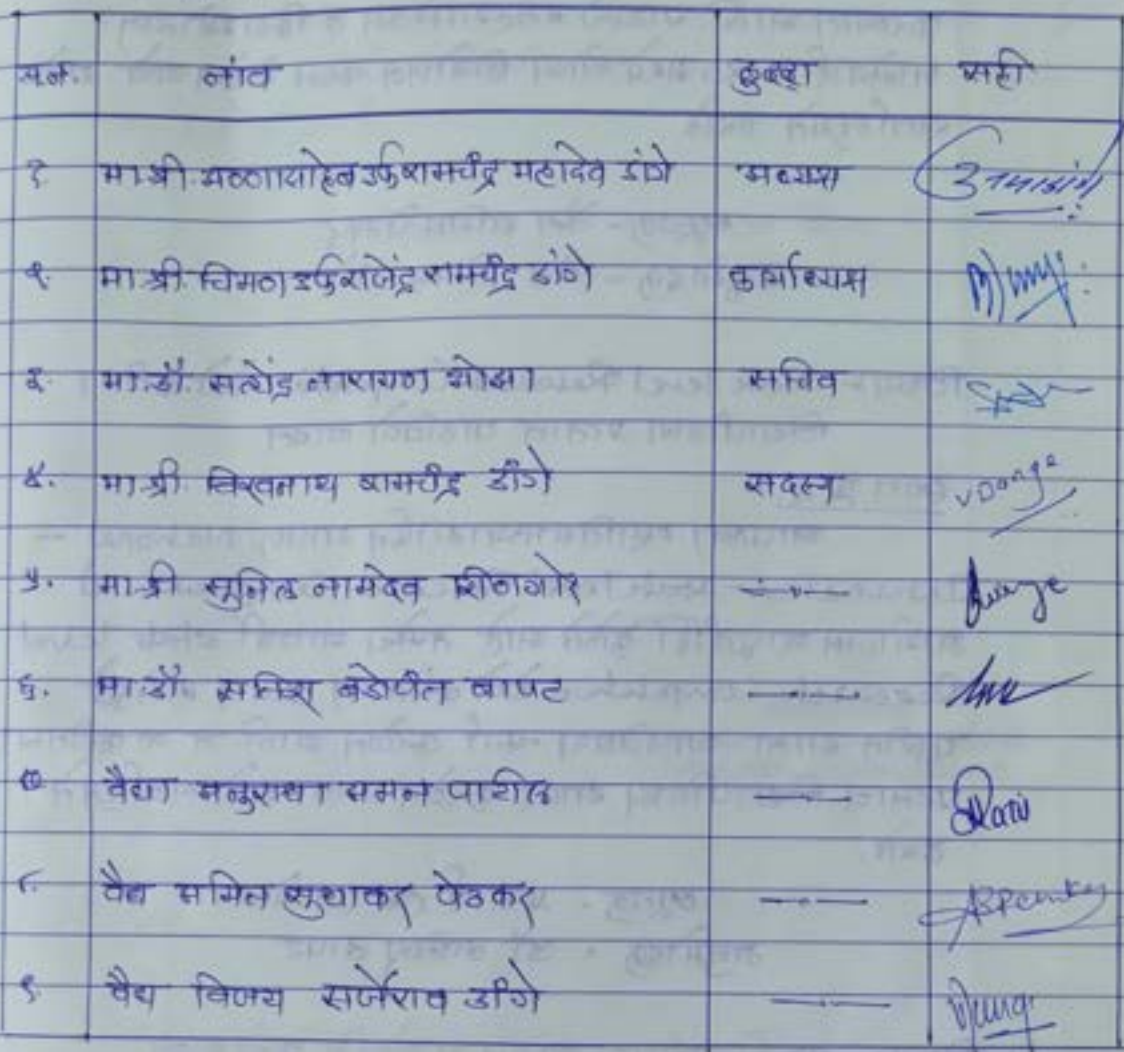 अ.नं. नांव हुद्दा सही
१. मा.श्री. अण्णासाहेब उर्फ रामचंद्र महादेव डांगे अध्यक्ष
२. मा.श्री. चिमण उर्फ राजेंद्र रामचंद्र डांगे कार्याध्यक्ष
३. मा.डॉ. सत्येंद्र नारायण ओझा सचिव
४. मा.श्री. विश्वनाथ रामचंद्र डांगे सदस्य VDange
५. मा.श्री. सुनिल नामदेव शिणगारे —〃—
६. मा.डॉ. सतिश बंडोपंत बापट —〃—
७ वैद्या अनुराधा अमन पाटील —〃—
८. वैद्य अमित सुधाकर पेठकर —〃—
९. वैद्य विजय सर्जेराव डांगे —〃—